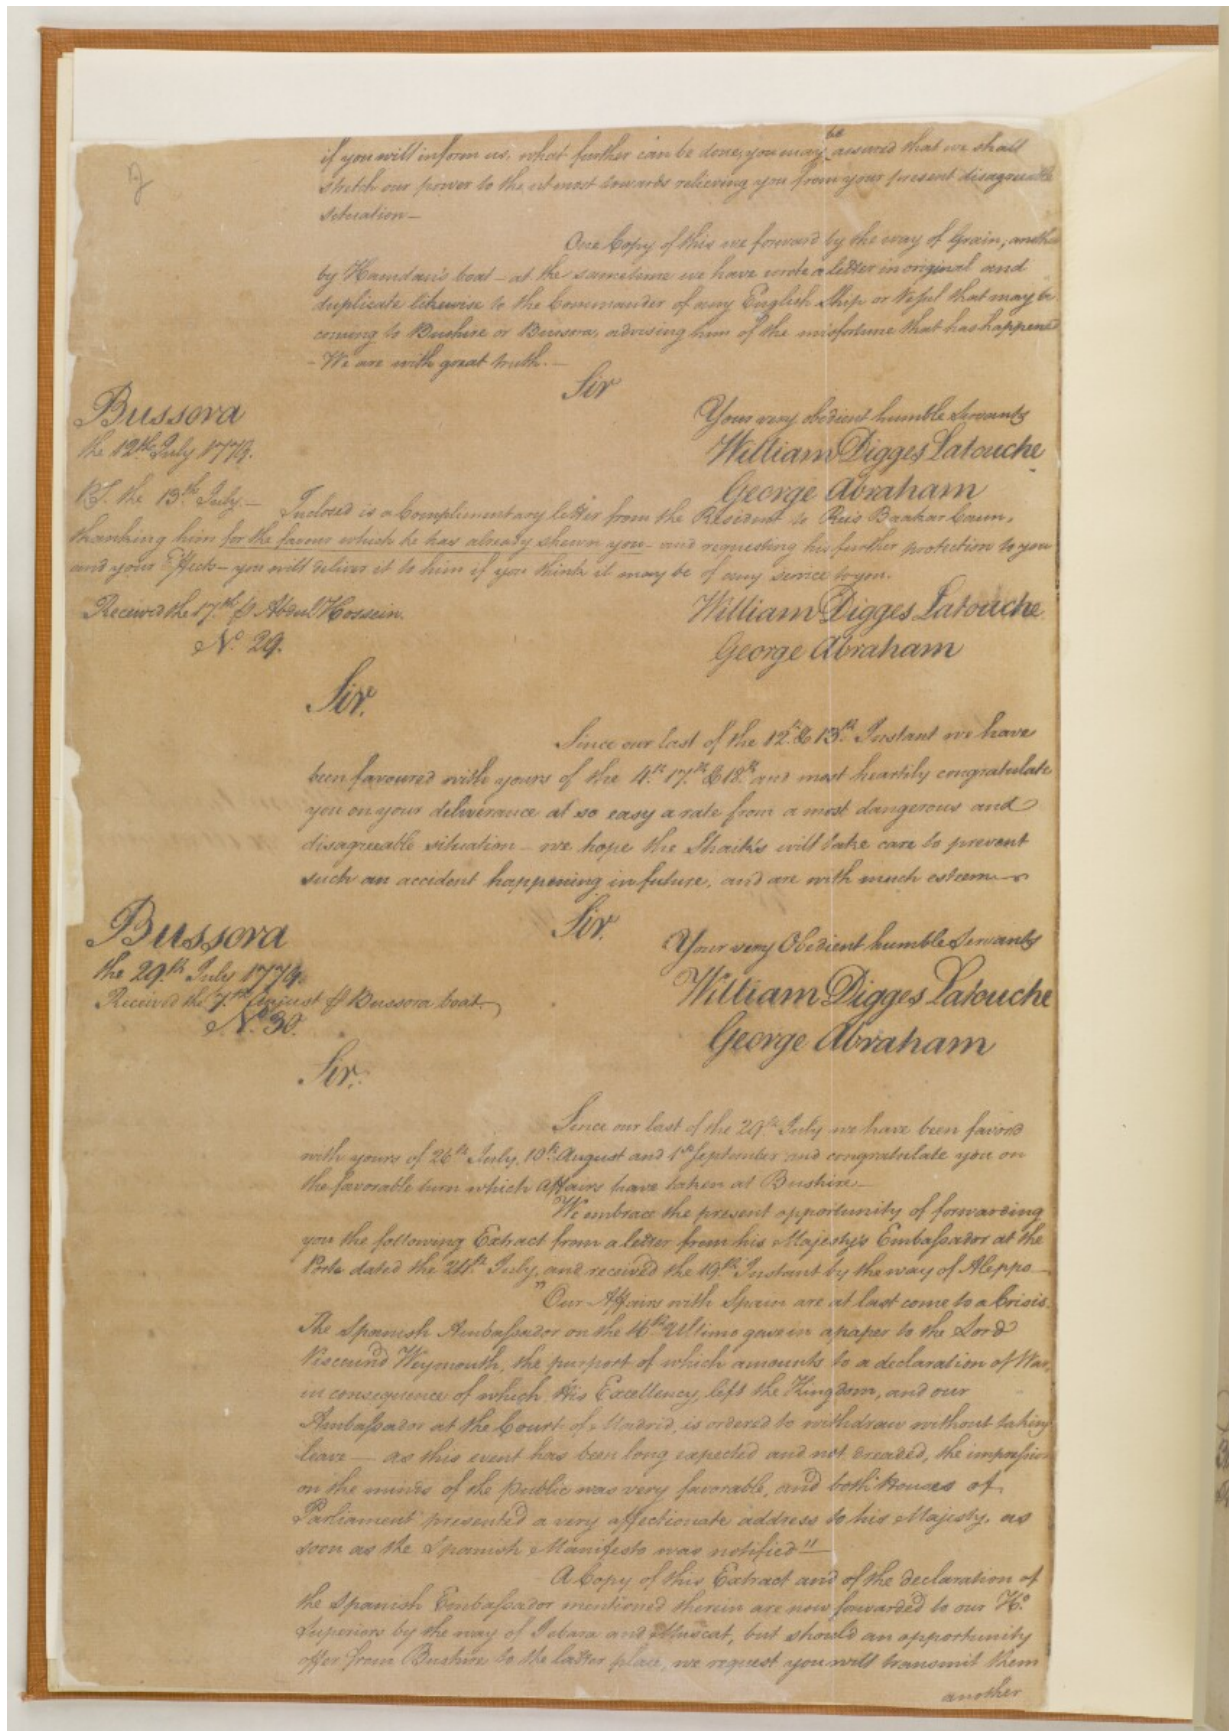 if you will inform us, what further can be done, you may be assured that we shall
stretch our power to the utmost towards relieving you from your present disagreeable
situation —
One Copy of this we forward by the way of Grain, another
by Hamdan's boat — at the sametime we have wrote a letter in original and
duplicate likewise to the Commander of any English Ship or Vessel that may be
coming to Bushire or Bussora, advising him of the misfortune that has happened
— We are with great truth. —
Sir
Bussora
Your very obedient humble Servants
the 12th July 1779.
William Digges Latouche
George Abraham
P.S. the 13th July. — Inclosed is a Complimentary letter from the Resident to Reis Baakar Caun,
thanking him for the favor which he has already shewn you — and requesting his further protection to you
and your Effects — you will deliver it to him if you think it may be of any service to you.
Received the 17th p Abdul Hossein.
William Digges Latouche
No. 29.
George Abraham
Sir.
Since our last of the 12th & 13th Instant we have
been favoured with yours of the 4th 17th & 18th and most heartily congratulate
you on your deliverance at so easy a rate from a most dangerous and
disagreeable situation — we hope the Shaiks will take care to prevent
such an accident happening in future, and are with much esteem —
Sir.
Bussora
Your very Obedient humble Servants
the 29th July 1779.
William Digges Latouche
Received the 7th August p Bussora boat.
George Abraham
No. 30.
Sir.
Since our last of the 29th July we have been favord
with yours of 26th July, 10th August and 1st September and congratulate you on
the favorable turn which Affairs have taken at Bushire —
We embrace the present opportunity of forwarding
you the following Extract from a letter from his Majesty's Embassador at the
Porte dated the 24th July, and received the 19th Instant by the way of Aleppo —
"Our Affairs with Spain are at last come to a Crisis.
The Spanish Ambassador on the 16th Ultimo gave in a paper to the Lord
Viscound Weymouth, the purport of which amounts to a declaration of War,
in consequence of which His Excellency, left the Kingdom, and our
Ambassador at the Court of Madrid, is ordered to withdraw without taking
leave — as this event has been long expected and not dreaded, the impression
on the minds of the public was very favorable, and both Houses of
Parliament presented a very affectionate address to his Majesty, as
soon as the Spanish Manifesto was notified" —
A Copy of this Extract and of the declaration of
the Spanish Embassador mentioned therein are now forwarded to our Ho.
Superiors by the way of Zebara and Muscat, but should an opportunity
offer from Bushire to the latter place, we request you will transmit them
another